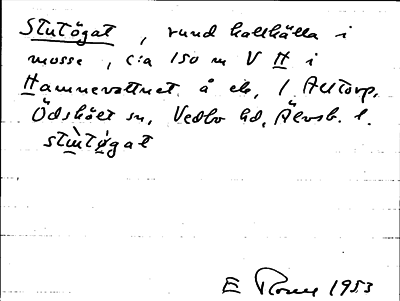 Stutögat, rund kallkälla i
mosse, c:a 150 m V H i
Hamnevattnet å ek, 1 Alltorp,
Ödskölt sn, Vedbo hd, Älvsb. l.
stùtǿgat
E 1953